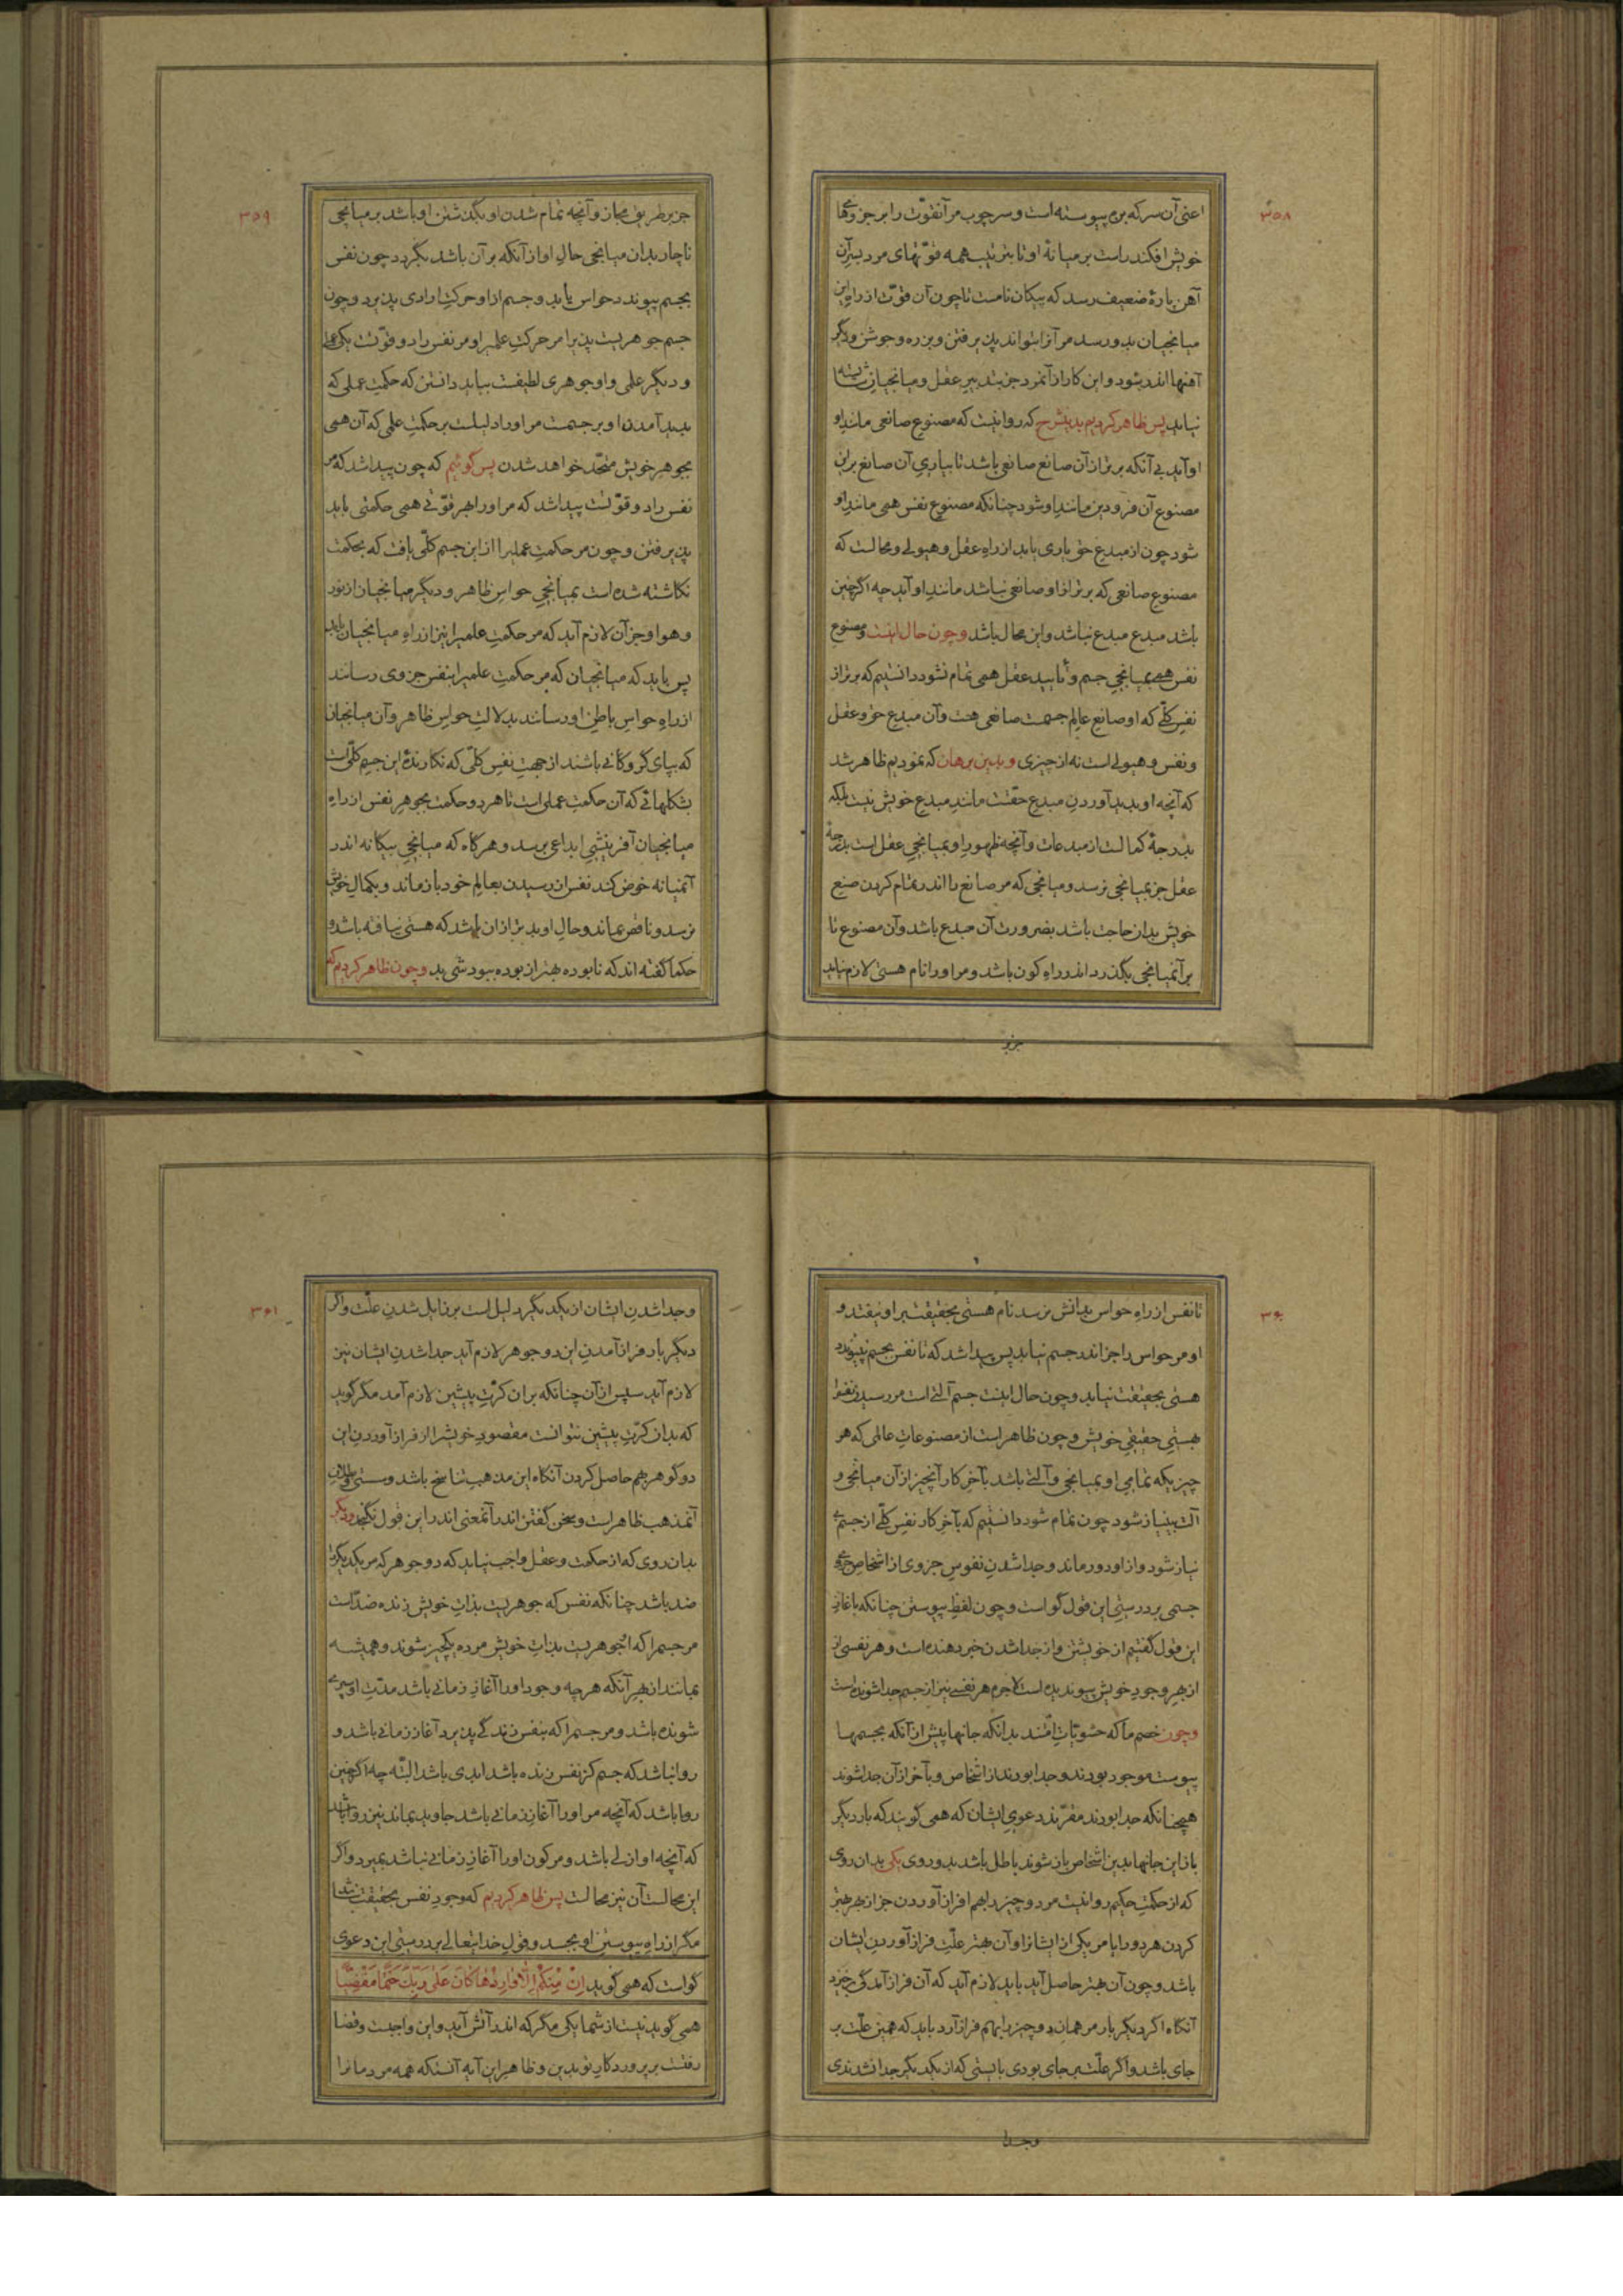 ۳۵۸
اعنی آن سر که بزه پیوسته است و سر چوب مر آنقوّت را بر جزوهای
خویش افکند راست بر میانهٔ او تا بترتیب همه قوّتهای مرد بر آن
آهن پارهٔ ضعیف رسد که پیکان نامست تا چون آن قوّت از راه این
میانجیان بدو رسد مر آنرا بتواند پذیرفتن و بزره و جوشن و دیگر
آهنها اندر شود و این کار از آنمرد جز بتدبیر عقل و میانجیان شایسته
نیاید پس ظاهر کردیم بدینشرح که روا نیست که مصنوع صانعی مانند او
آید بی آنکه برتر از آن صانع صانعی باشد تا بیاری آن صانع برین
مصنوع آن فرودین مانند او شود چنانکه مصنوع نفس همی مانند او
شود چون از مبدع حق یاری یابد از راه عقل و هیولی و محالست که
مصنوع صانعی که برتر از او صانعی نباشد مانند او آید چه اگر چنین
باشد مبدع مبدع نباشد و این محال باشد و چون حال اینست و مصنوع
نفس همی بمیانجی جسم و تأیید عقل همی تمام نشود دانستیم که برتر از
نفس کلّی که او صانع عالم جسمست صانعی هست و آن مبدع حق و عقل
و نفس و هیولی است نه از چیزی و بدین برهان که نمودیم ظاهر شد
که آنچه او پدید آوردن مبدع حقّست مانند مبدع خویش نیست بلکه
بدرجهٔ کمالست از مبدعات و آنچه ظهور او بمیانجی عقل است بدرجهٔ
عقل جز بمیانجی نرسد و میانجی که مر صانع را اندر تمام کردن صنع
خویش بدان حاجت باشد بضرورت آن مبدع باشد و آن مصنوع تا
بر آنمیانجی بگذرد اندر راه کون باشد و مر او را نام هستی لازم نیاید
جزبر
۳۵۹
جز بر طریق مجاز و آنچه تمام شدن او بگذشتن او باشد بر میانجی
ناچار بدان میانجی حال او از آنکه بر آن باشد بگردد چون نفس
بجسم پیوندد حواس یابد و جسم از او حرکت ارادی پذیرد و چون
جسم جوهریست پذیرا مر حرکت علمیرا و مر نفس را دو قوّتست یکی عملی
و دیگر علمی و او جوهری لطیفست بباید دانستن که حکمت عملی که
پدید آمدن او بر جسمست مر او را دلیلست بر حکمت علمی که آن همی
بجوهر خویش متّحد خواهد شدن پس گوئیم که چون پیدا شد که مر
نفس را دو قوّتست پیدا شد که مر او را بهر قوّتی همی حکمتی باید
پذیرفتن و چون مر حکمت عملیرا از این جسم کلّی یافت که بحکمت
نگاشته شده است بمیانجی حواس ظاهر و دیگر میانجیان از نور
و هوا و جز آن لازم آید که مر حکمت علمیرا نیز از راه میانجیان یابد
پس باید که میانجیان که مر حکمت علمیرا بنفس جزوی رسانند
از راه حواس باطن او رسانند بدلالت حواس ظاهر و آن میانجیان
که بپای کروکانی باشند از جهت نفس کلّی که نگارندهٔ این جسم کلّی است
بشکلهائی که آن حکمت عملی است تا هر دو حکمت بجوهر نفس از راه
میانجیان آفرینشی ابداعی برسد و هرگاه که میانجی بیگانه اندر
آنمیانه خوض کند نفس از رسیدن بعالم خود باز ماند و بکمال خویش
نرسد و ناقص بماند و حال او بدتر از آن باشد که هستی نیافته باشد و
حکما گفته اند که نابوده بهتر از بوده ببودشی بد و چون ظاهر کردیم که
۳۶۰
تا نفس از راه حواس بدانش نرسد نام هستی بحقیقت بر او نیفتد و
او مر حواس را جز اندر جسم نیابد پس پیدا شد که تا نفس بجسم نپیوندد
هستی بحقیقت نیابد و چون حال اینست جسم آلتی است مر رسیدن نفس را
بهستی حقیقی خویش و چون ظاهر است از مصنوعات عالمی که هر
چیزیکه تمامی او بمیانجی و آلتی باشد بآخر کار آنچیز از آن میانجی و
آلت بینیاز شود چون تمام شود دانستیم که بآخر کار نفس کلّی از جسم بی
نیاز شود و از او دور ماند و جدا شدن نفوس جزوی از اشخاص جزوی
جسمی بر درستی این قول گواست و چون لفظ پیوستن چنانکه بآغاز
این قول گفتیم از خویشتن و از جدا شدن خبر دهنده است و هر نفسی از
از بهر وجود خویش پیوندیده است لاجرم هر نفسی نیز از جسم جدا شونده است
و چون خصم ما که حشویّات امّتند بدانکه جانها پیش از آنکه بجسمها
پیوست موجود بودند و جدا بودند از اشخاص و بآخر از آن جدا شوند
همچنانکه جدا بودند مقرّند دعوی ایشان که همی گویند که بار دیگر
باز این جانها بدین اشخاص باز شوند باطل باشد بدو روی یکی بدان روی
که از حکمت حکیم روا نیست مر دو چیز را بهم فراز آوردن جز از بهر بهتر
کردن هر دو را یا مر یکی از ایشانرا و آن بهتر علّت فراز آوردن ایشان
باشد و چون آن بهتر حاصل آید باید لازم آید که آن فراز آمدگی برخیزد
آنگاه اگر دیگر بار مر همان دو چیز را بهم فراز آرد باید که همین علّت بر
جای باشد و اگر علّت بر جای بودی بایستی که از یکدیگر جدا نشدندی
وجدا
۳۶۱
و جدا شدن ایشان از یکدیگر دلیل است بر زایل شدن علّت و اگر
دیگر بار فراز آمدن این دو جوهر لازم آید جدا شدن ایشان نیز
لازم آید سپس از آن چنانکه بر آن کرّت پیشین لازم آمد مگر گوید
که بدان کرّت پیشین نتوانست مقصود خویشرا از فراز آوردن این
دو گوهر بهم حاصل کردن آنگاه این مذهب تناسخ باشد و سستی و بطلان
آنمذهب ظاهر است و سخن گفتن اندر آنمعنی اندر این قول نگنجد و دیگر
بدان روی که از حکمت و عقل واجب نیاید که دو جوهر که مر یکدیگر را
ضد باشد چنانکه نفس که جوهریست بذات خویش زنده ضدّ است
مر جسم را که او جوهریست بذات خویش مرده یکچیز شوند و همیشه
بمانند از بهر آنکه هر چه وجود او را آغاز زمانی باشد مدّت او سپری
شونده باشد و مر جسمرا که بنفس زندگی پذیرد آغاز زمانی باشد و
روا نباشد که جسم کز نفس زنده باشد ابدی باشد البتّه چه اگر چنین
روا باشد که آنچه مر او را آغاز زمانی باشد جاوید بماند نیز روا باشد
که آنچه او ازلی باشد و مر کون او را آغاز زمانی نباشد بمیرد و اگر
این محالست آن نیز محالست پس ظاهر کردیم که وجود نفس بحقیقت نباشد
مگر از راه پیوستن او بجسد و قول خدایتعالی بر درستی این دعوی
گواست که همی گوید اِنْ مِنْکُمْ اِلّا وارِدُها کانَ عَلی رَبِّکَ حَتْماً مَقْضِیّاً
همی گوید نیست از شما یکی مگر که اندر آتش آید و این واجبست و قضا
رفتست بر پروردگار تو بدین و ظاهر این آیه آنستکه همه مردمانرا